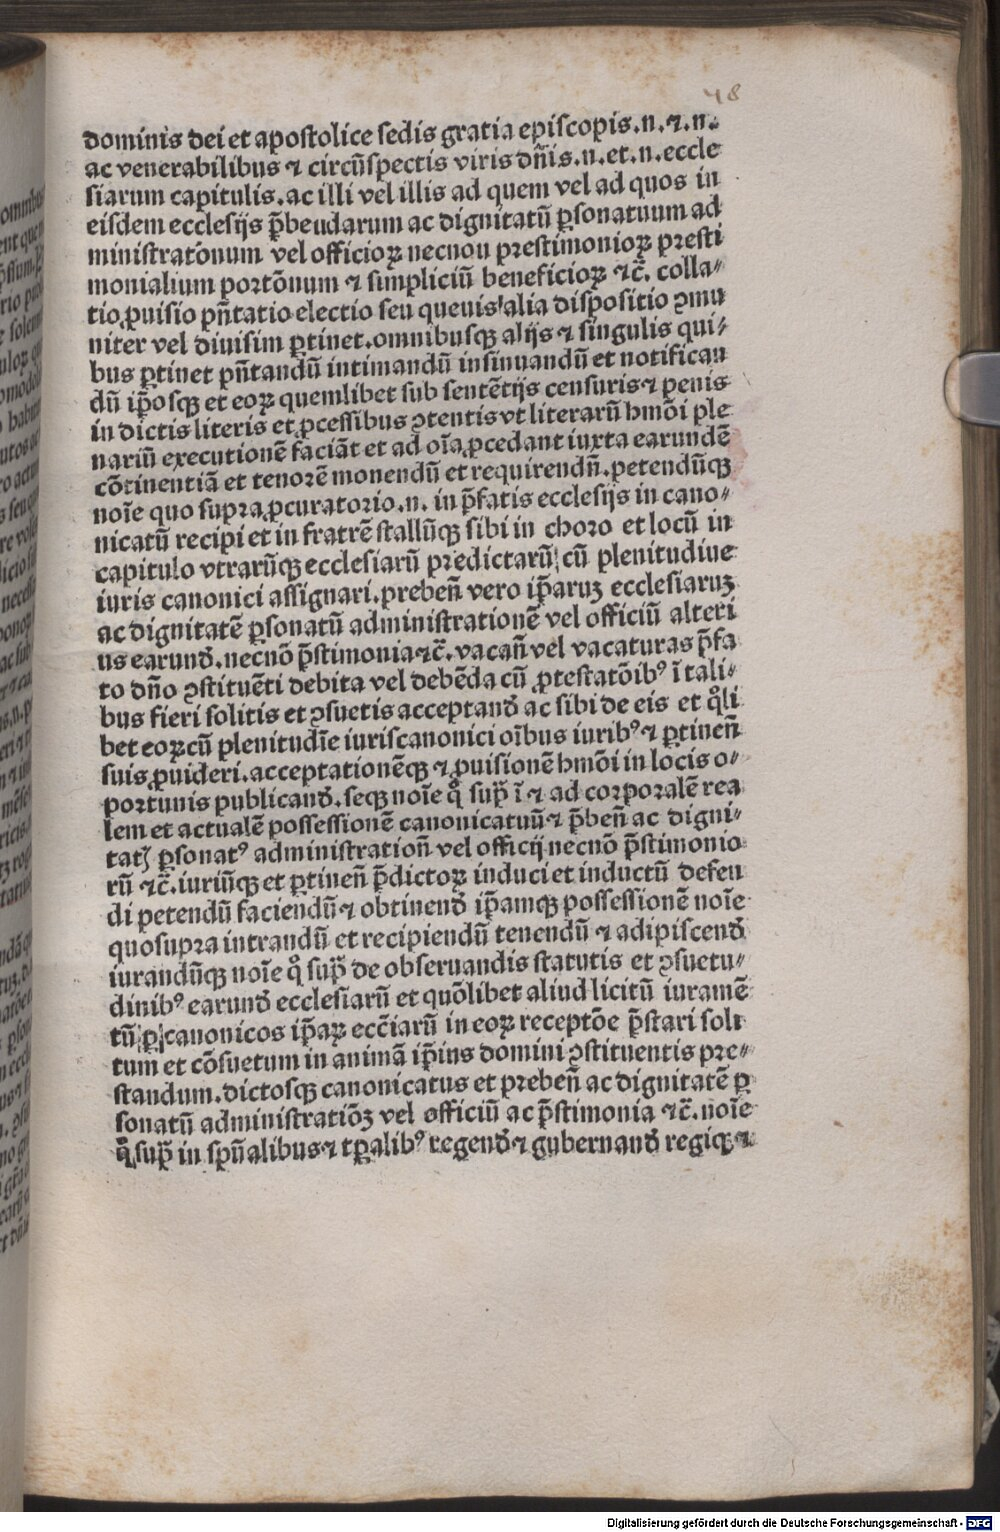 48
dominis dei et apostolice sedis gratia episcopis.n.⁊.n.
ac venerabilibus ⁊ circūspectis viris dn̄is.n.et.n.eccle
siarum capitulis.ac illi vel illis ad quem vel ad quos in
eisdem ecclesijs p̄beudarum ac dignitatū ꝑsonatuum ad
ministratōnum vel officioꝝ necnou prestimonioꝝ presti
monialium portōnum ⁊ simpliciū beneficioꝝ ⁊c̄. colla⸗
tio ꝓuisio pn̄tatio electio seu queuis alia dispositio ꝯmu
niter vel diuisim ꝑtinet.omnibusqꝫ alijs ⁊ singulis qui⸗
bus ꝑtinet pn̄tandū intimandū insinuandū et notifican
dū ip̄osqꝫ et eoꝝ quemlibet sub sentētijs censuris ⁊ penis
in dictis literis et ꝓcessibus ꝯtentis vt literarū hmōi ple
nariū executionē faciāt et ad oīa ꝓcedant iuxta earundē
cōtinentiā et tenorē monendū et requirendū.petendūqꝫ
noīe quo supra ꝓcuratorio.n. in p̄fatis ecclesijs in cano⸗
nicatū recipi et in fratrē stallūqꝫ sibi in choro et locū in
capitulo vtrarūqꝫ ecclesiarū predictarū cū plenitudine
iuris canonici assignari.prebeñ vero ip̄aruꝫ ecclesiaruꝫ
ac dignitatē ꝑsonatū administrationē vel officiū alteri
us earund̄.necnō p̄stimonia ⁊c̄.vacan̄ vel vacaturas p̄fa
to dn̄o ꝯstituēti debita vel debēda cū ꝓtestatōibꝰ ī tali⸗
bus fieri solitis et ꝯsuetis acceptand̄ ac sibi de eis et q̊li
bet eoꝝ cū plenitudīe iuris canonici oībus iuribꝰ ⁊ ꝑtineñ
suis ꝓuideri.acceptationēqꝫ ⁊ ꝓuisionē hmōi in locis o⸗
portunis publicand̄.seqꝫ noīe q̊ sup̄ ī ⁊ ad corporalē rea
lem et actualē possessionē canonicatuū ⁊ p̄beñ ac digni⸗
tatꝭ ꝑsonatꝰ administratioñ vel officij necnō p̄stimonio
rū ⁊c̄.iuriūqꝫ et ꝑtineñ p̄dictoꝝ induci et inductū defen
di petendū faciendū ⁊ obtinend̄ ip̄amqꝫ possessionē noīe
quo supra intrandū et recipiendū tenendū ⁊ adipiscend̄
iurandūqꝫ noīe q̊ sup̄ de obseruandis statutis et ꝯsuetu⸗
dinibꝰ earund̄ ecclesiarū et quōlibet aliud licitū iuramē
tū ꝑ canonicos ip̄aꝝ ecc̄iarū in eoꝝ receptōe p̄stari soli
tum et cōsuetum in animā ip̄ius domini ꝯstituentis pre⸗
standum.dictosqꝫ canonicatus et prebeñ ac dignitatē ꝑ
sonatū administratiōꝫ vel officiū ac p̄stimonia ⁊c̄.noīe
q̊ sup̄ in spūalibus ⁊ tꝑalibꝰ regend̄ ⁊ gubernand̄ regiqꝫ ⁊
Digitalisierung gefördert durch die Deutsche Forschungsgemeinschaft - DFG